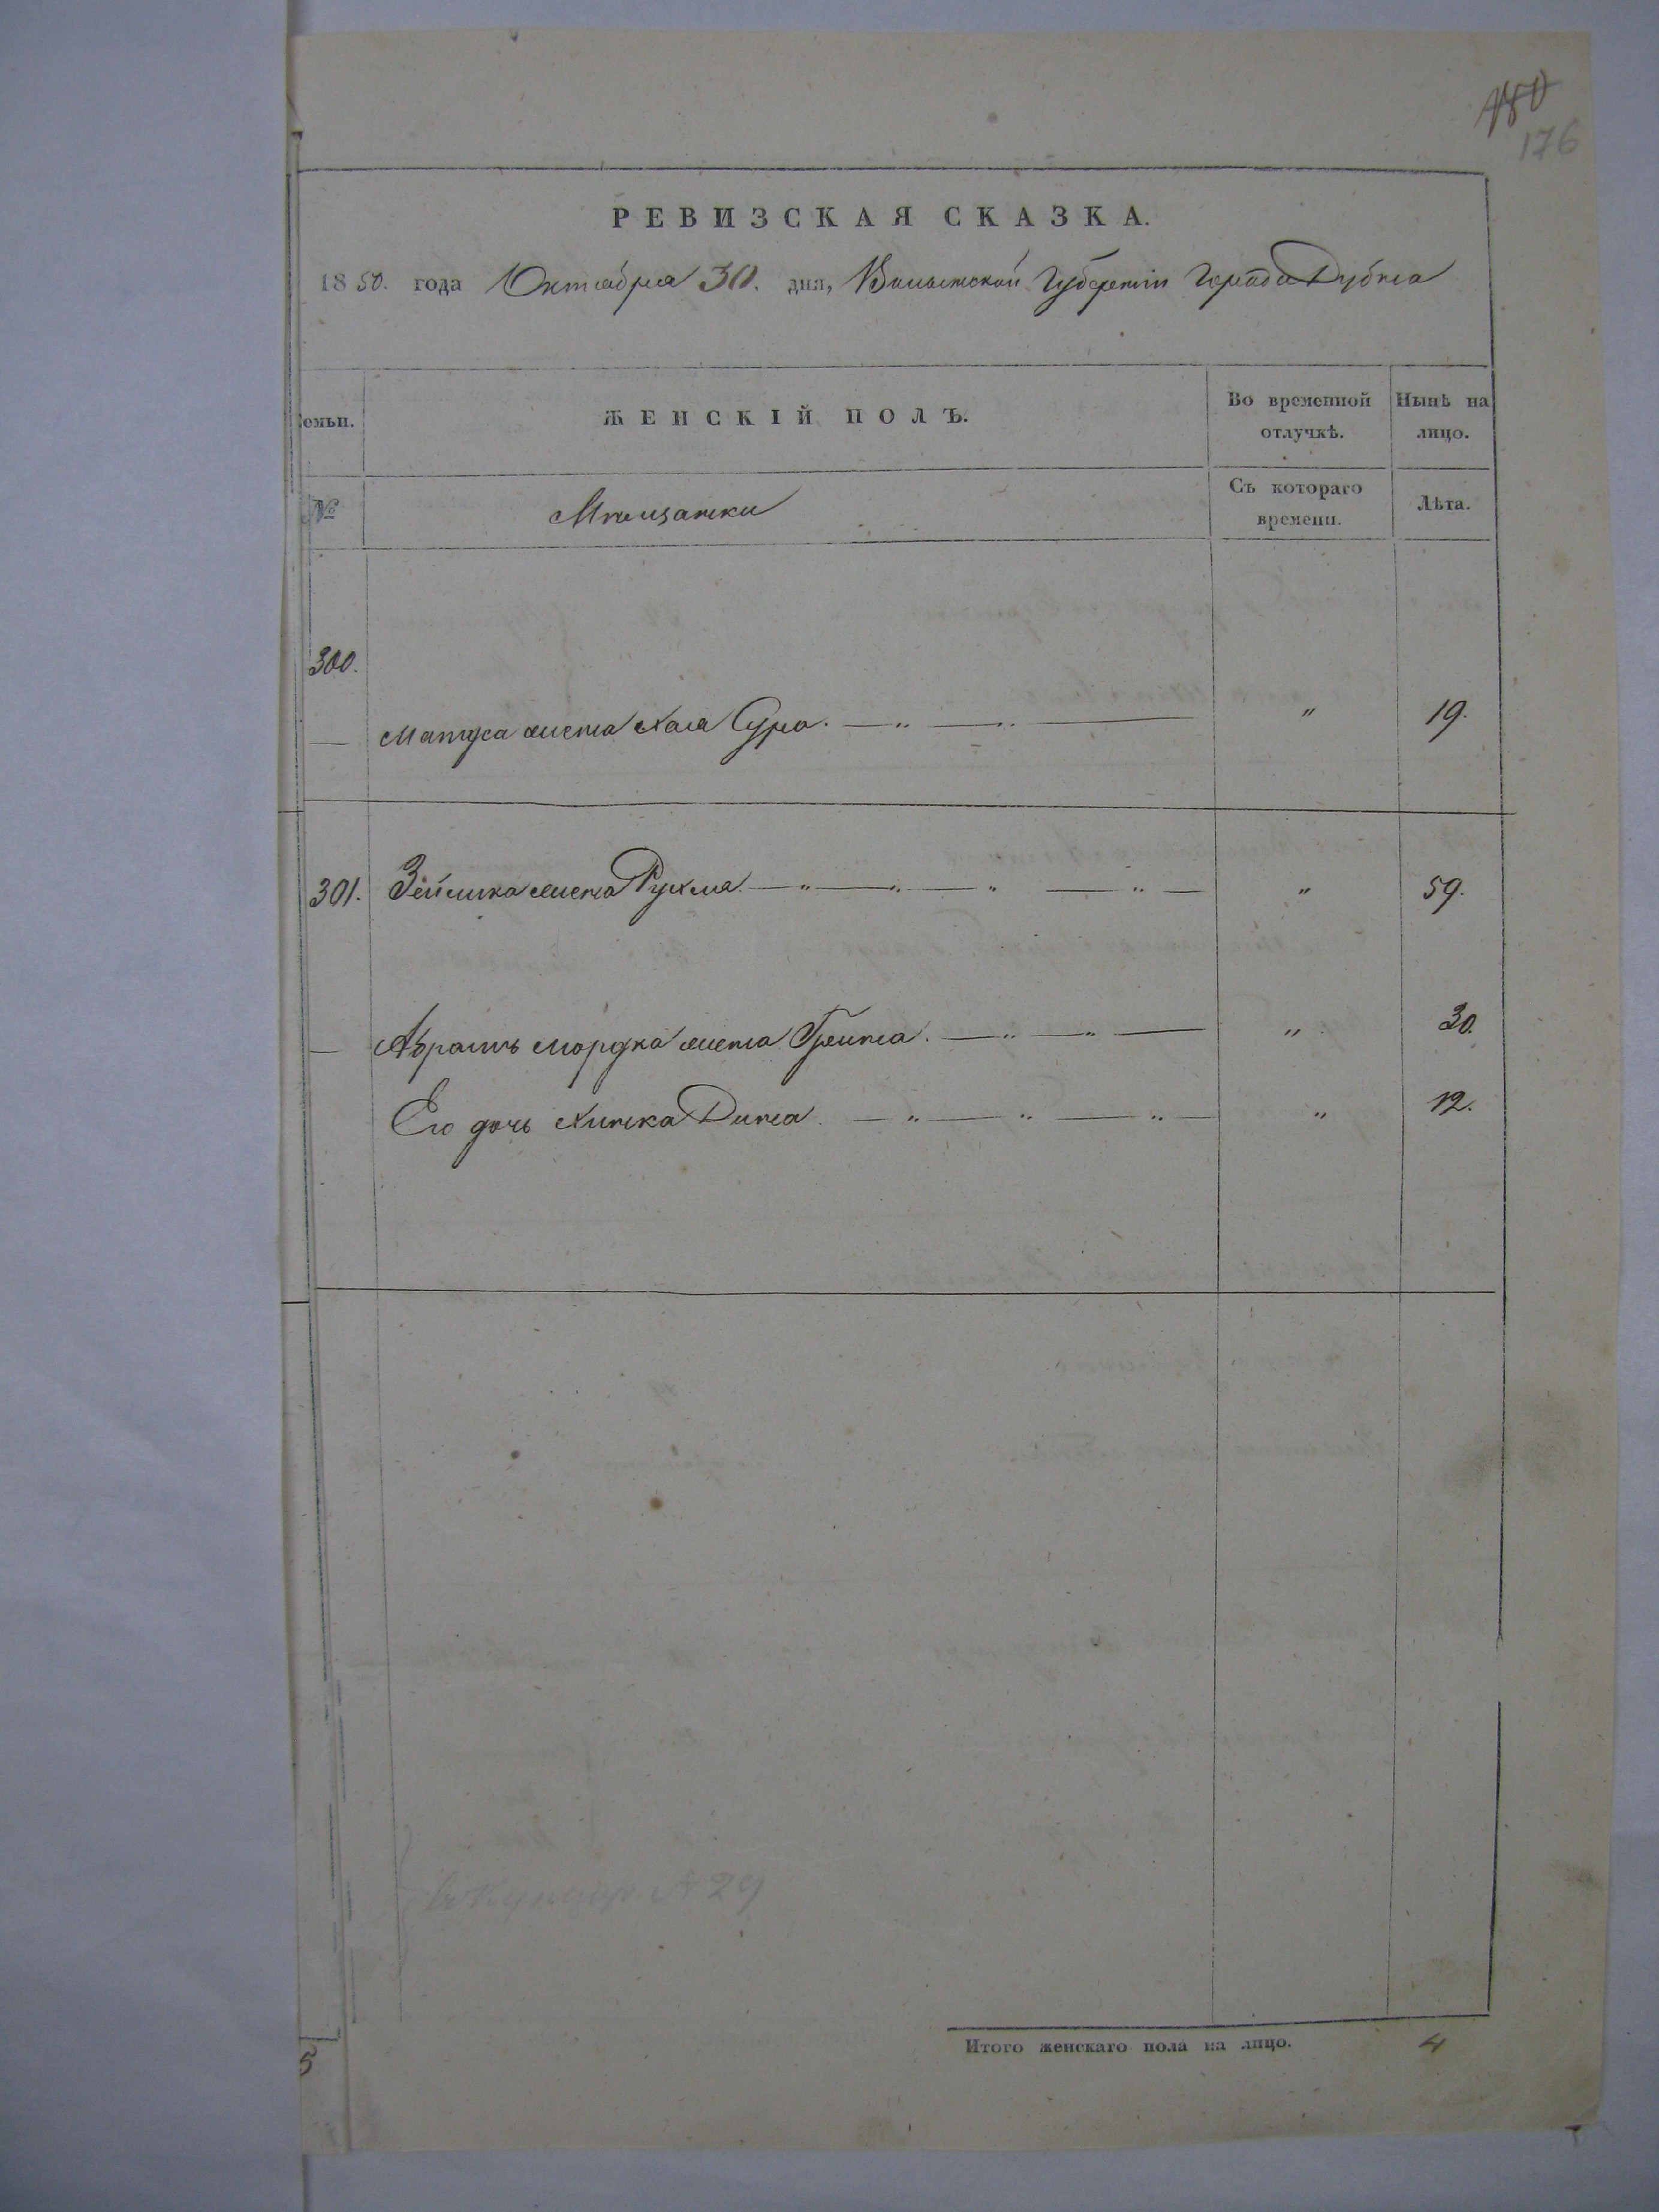 180
176
РЕВИЗСКАЯ СКАЗКА.
1850. года Октября 30. дня, Волынской Губерніи Города Дубна
Семьи.
ЖЕНСКІЙ ПОЛЪ.
Во временной отлучкѣ.
Нынѣ на лицо.
№
Мѣщанки
Съ котораго времени.
Лѣта.
300.
— Матуса жена Хая Сура. — „ — „ — „ 19.
301. Зейлика жена Рухля — „ — „ — „ — „ — „ 59.
— Абрамъ Мордка жена Грина. — „ — „ — „ 30.
Его дочь Хинка Дина. — „ — „ — „ — „ 12.
№ 29
Итого женскаго пола на лицо. 4
5